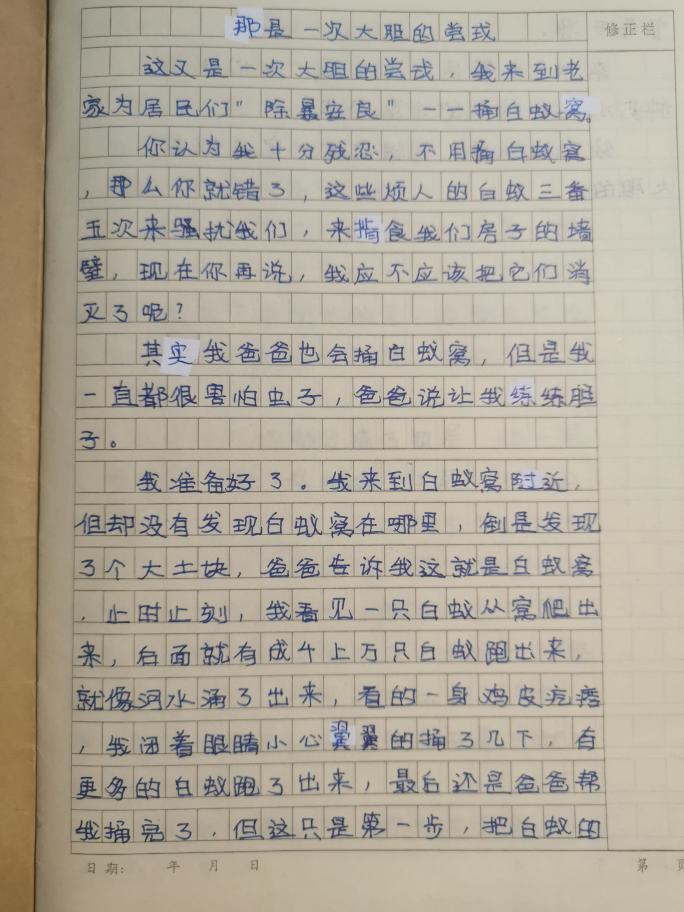 那是一次大胆的尝试
修正栏
这又是一次大胆的尝试，我来到老
家为居民们"除暴安良"——捅白蚁窝
你认为我十分残忍，不用捅白蚁窝
，那么你就错了，这些烦人的白蚁三番
五次来骚扰我们，来揹食我们房子的墙
壁，现在你再说，我应不应该把它们消
灭了呢？
其实我爸爸也会捅白蚁窝，但是我
一直都很害怕虫子，爸爸说让我练练胆
子。
我准备好了。我来到白蚁窝附近，
但却没有发现白蚁窝在哪里，倒是发现
了个大土块，爸爸告诉我这就是白蚁窝
，此时此刻，我看见一只白蚁从窝爬出
来，后面就有成千上万只白蚁跑出来，
就像河水涌了出来，看的一身鸡皮疙瘩
，我闭着眼睛小心翼翼的捅了几下，有
更多的白蚁跑了出来，最后还是爸爸帮
我捅完了，但这只是第一步，把白蚁的
日期： 年 月 日
第 页